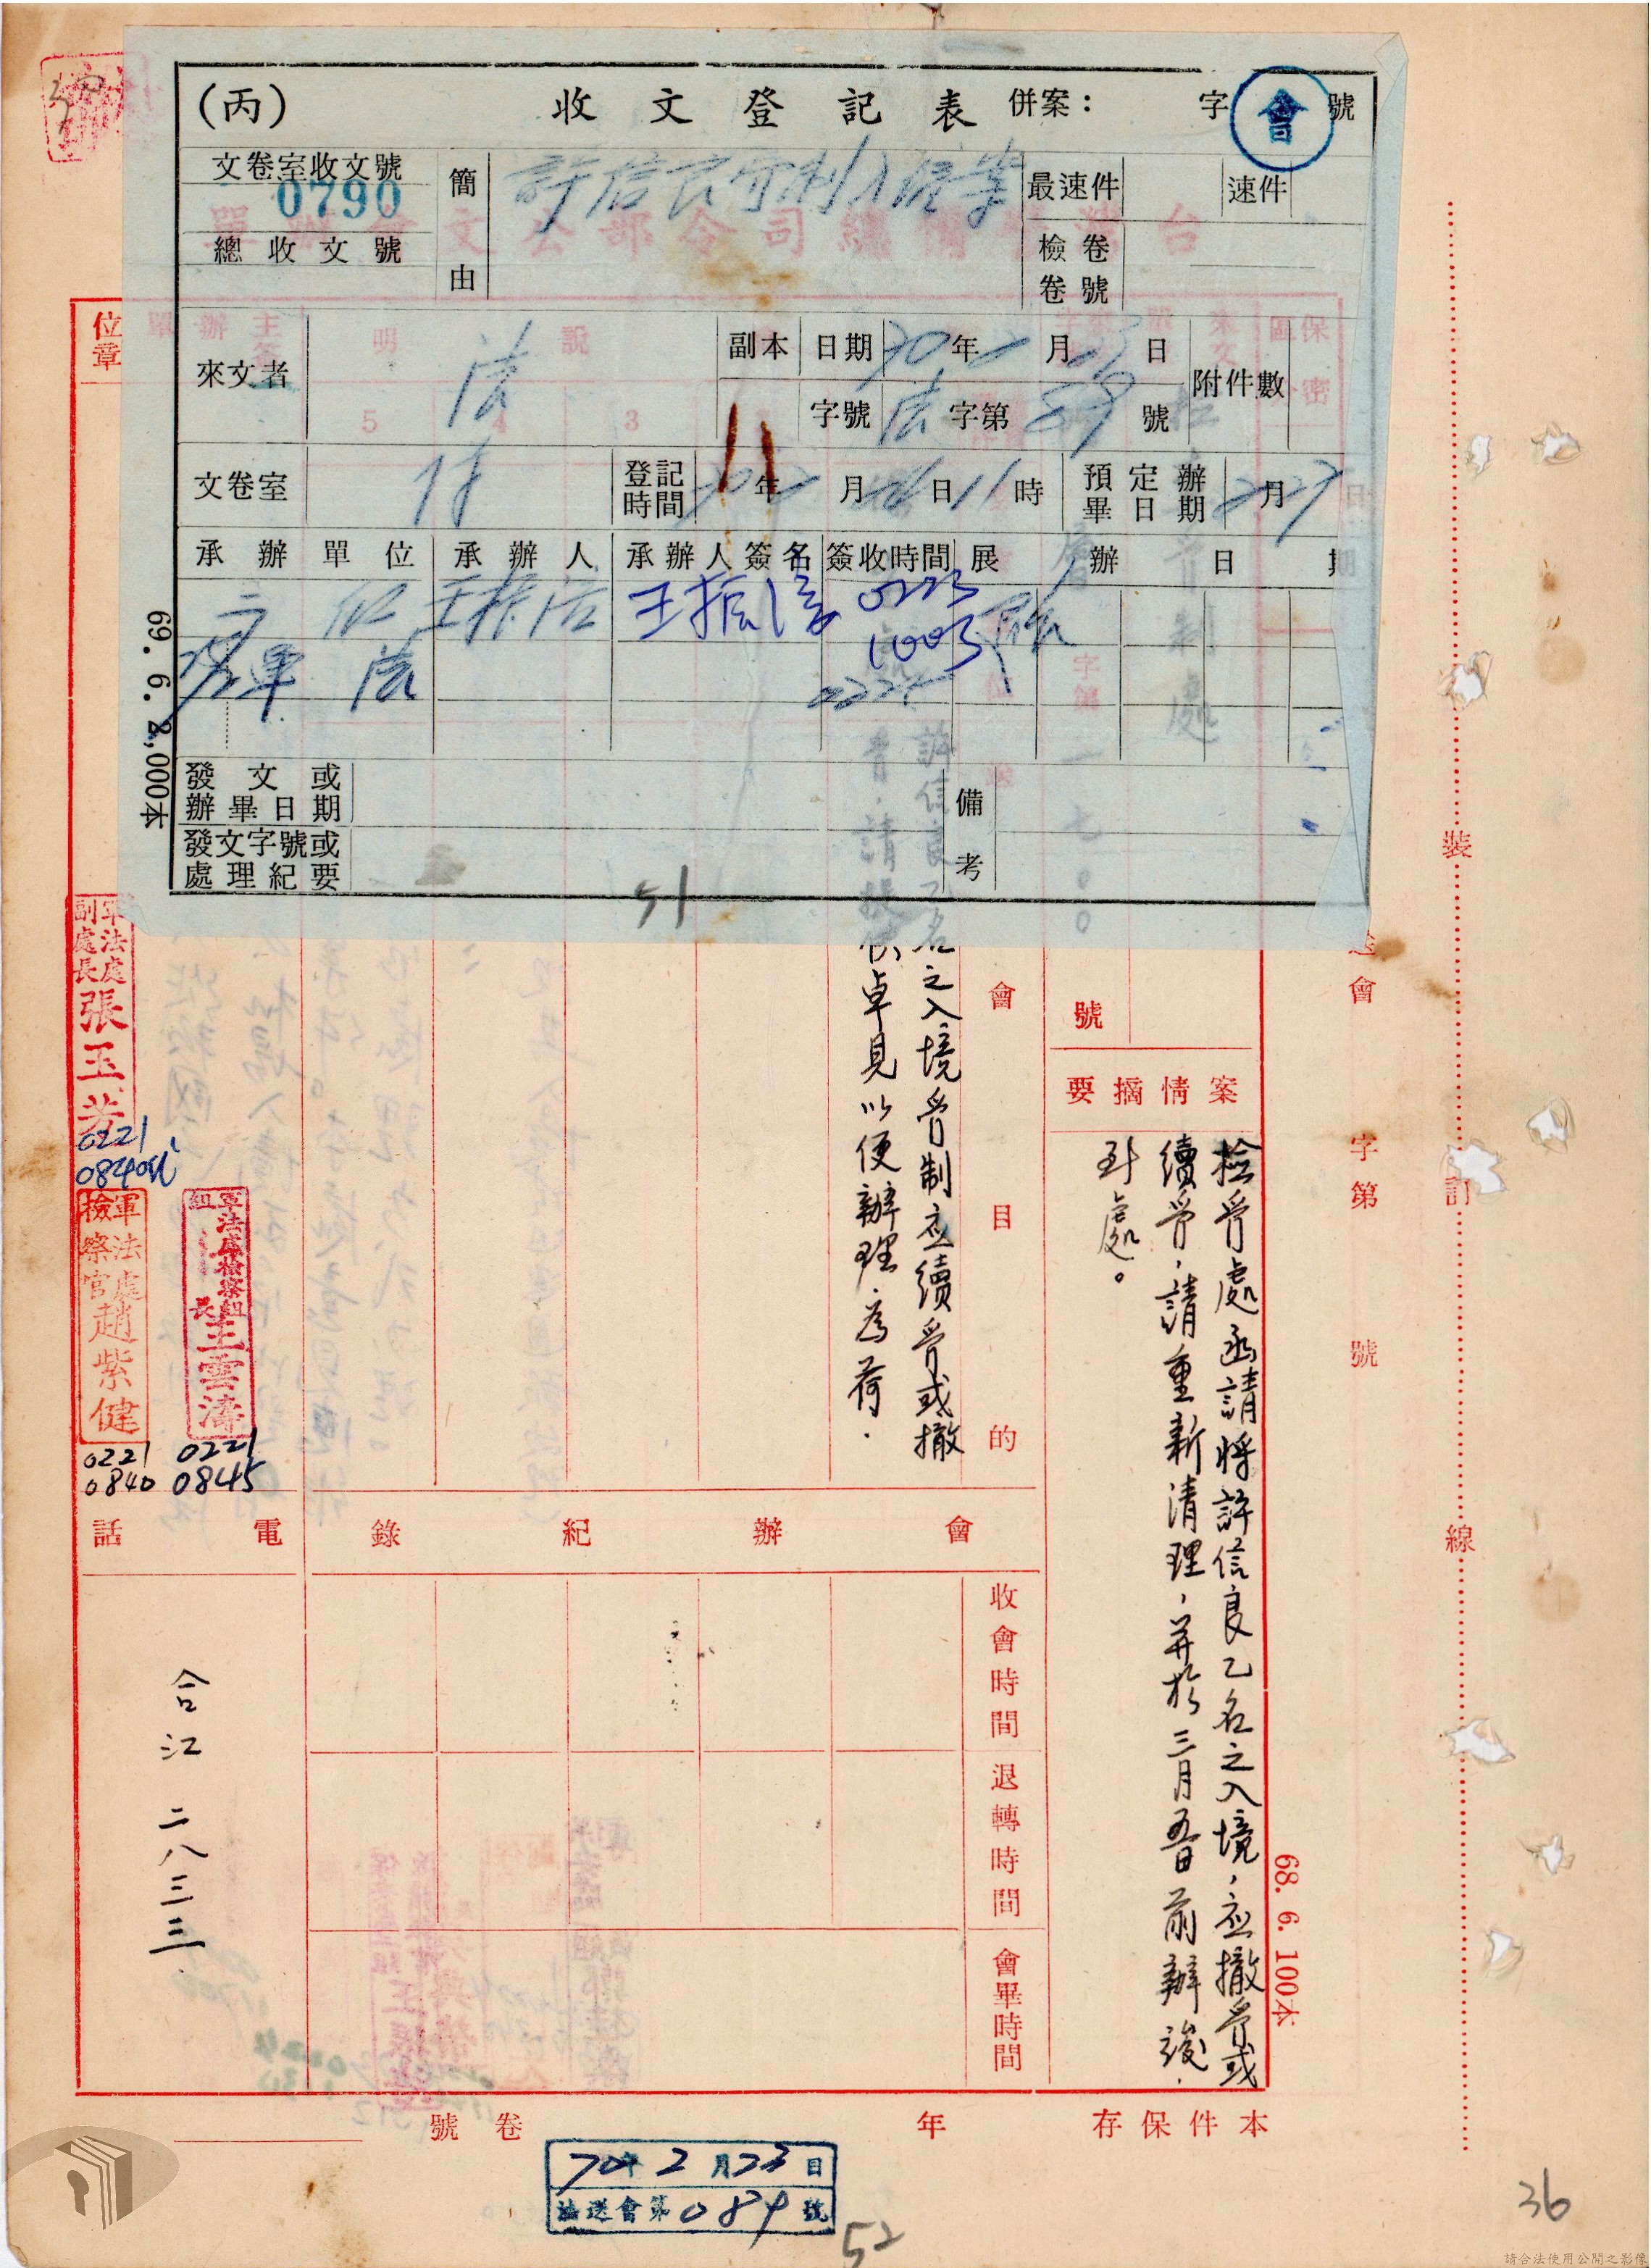 (丙)
收文登記表
併案：　字　號
會
文卷室收文號
0790
總收文號
簡由
許信良管制入境案
最速件
速件
檢卷卷號
來文者
法
副本
日期 70年2月23日
字號 法字第89號
附件數
文卷室
登記時間 70年2月 日11時
預定辦畢日期 2月27日
承辦單位
承辦人
承辦人簽名
簽收時間
展辦日期
軍法
0223
1003
69. 6. 2,000本
發文或辦畢日期
發文字號或處理紀要
備考
51
位章
號
案情摘要
檢管處函請將許信良乙名之入境，應撤管或
續管，請重新清理，并於三月五日前辦竣
到處。
會目的
許信良乙名之入境管制應續管或撤
卓見以便辦理，為荷．
軍法處副處長張玉芳
0221
0840
軍法處檢察官趙紫健
0221
0840
軍法處檢察組組長王雲濤
0221
0845
會辦紀錄
電話
合江　二八三三
收會時間
退轉時間
會畢時間
68. 6. 100本
本件保存　年　卷　號
70年2月23日
法送會第089號
52
送會　字第　號
裝訂線
36
請合法使用公開之影像